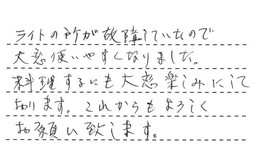 ライトの所が故障していたので
大変使いやすくなりました。
料理するにも大変楽しみにして
おります。これからもよろしく
お願い致します。